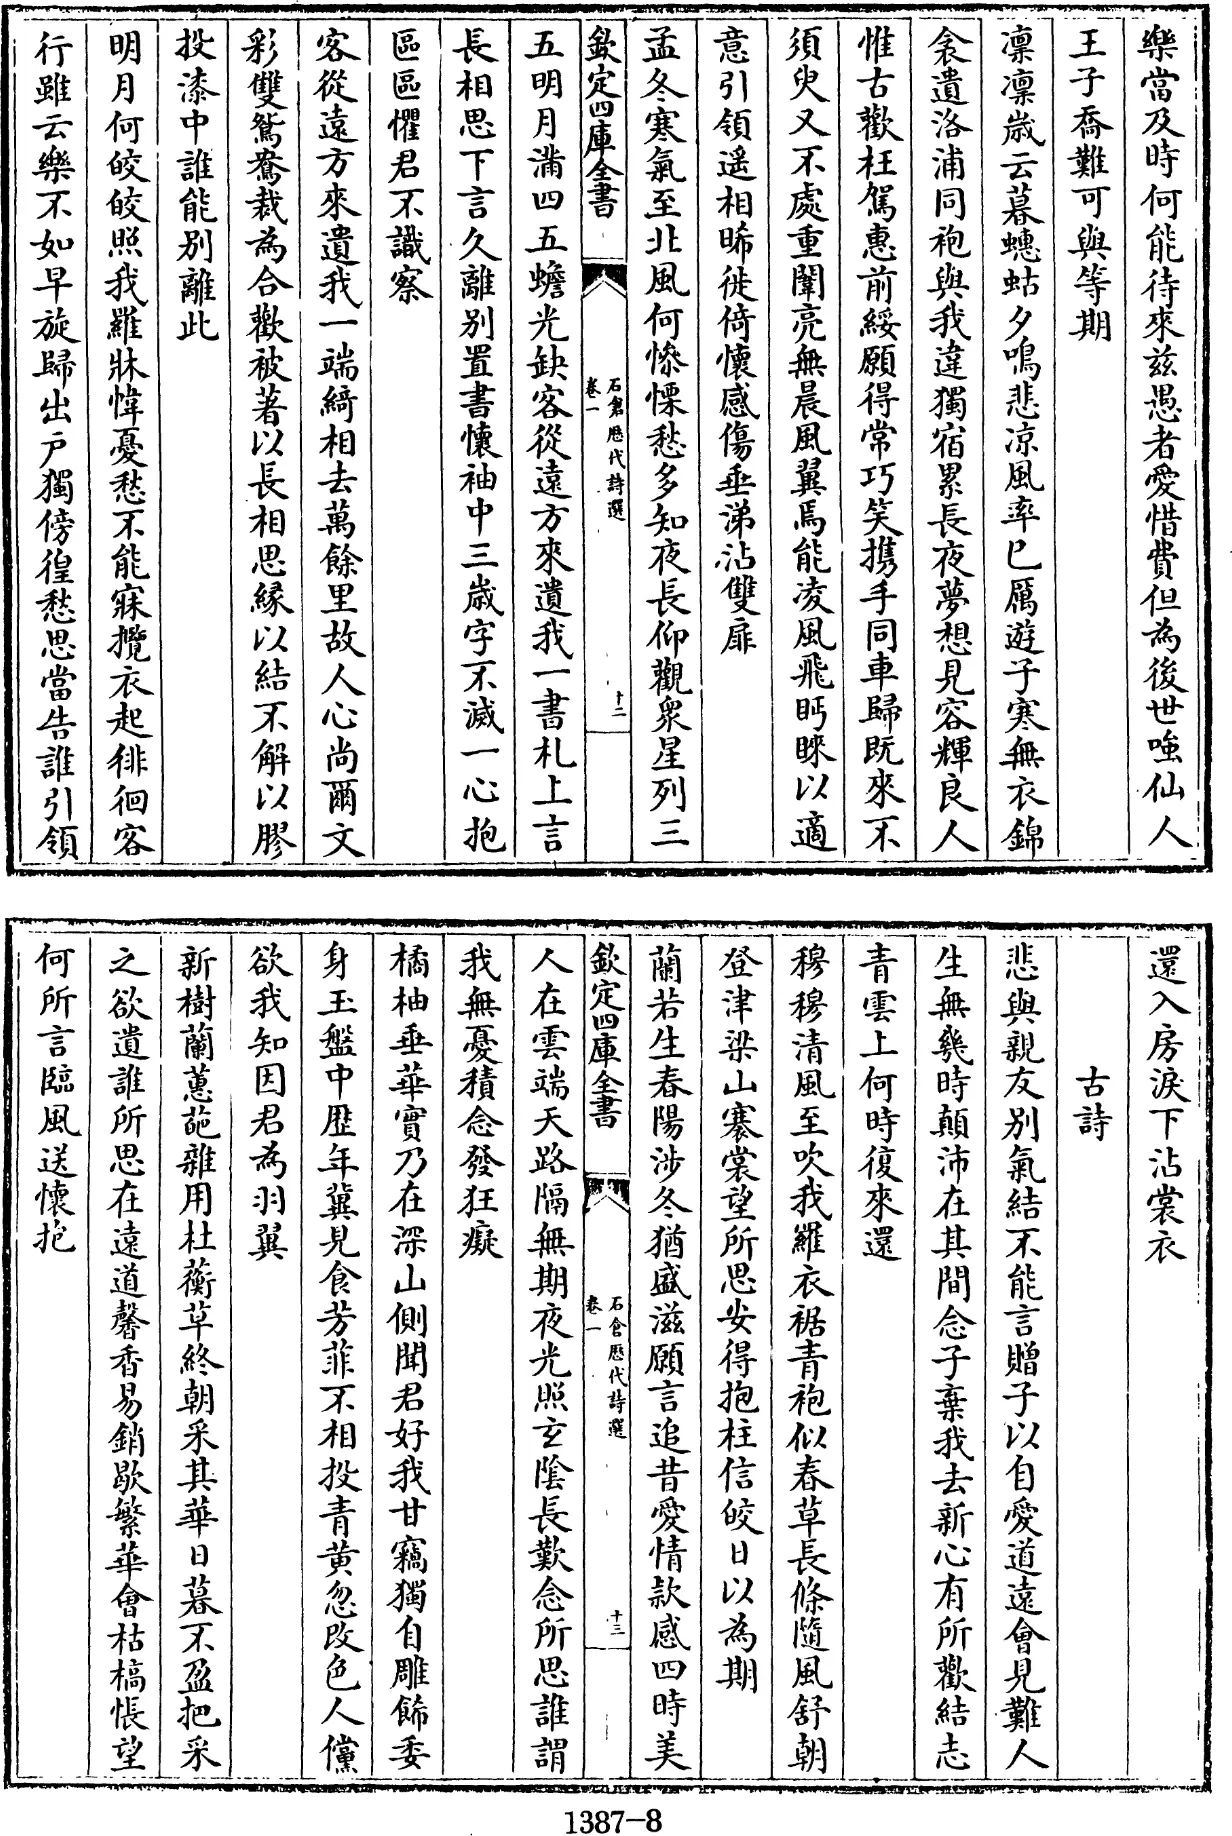 樂當及時何能待來茲愚者愛惜費但為後世嗤仙人
王子喬難可與等期
凛凛歲云暮螻蛄夕鳴悲涼風率已厲遊子寒無衣錦
衾遺洛浦同袍與我違獨宿累長夜夢想見容輝良人
惟古歡枉駕惠前綏願得常巧笑攜手同車歸既來不
須臾又不處重闈亮無晨風翼焉能凌風飛眄睞以適
意引領遥相睎徙倚懷感傷垂涕沾雙扉
孟冬寒氣至北風何慘慄愁多知夜長仰觀衆星列三
欽定四庫全書
石倉歷代詩選
卷一
十二
五明月滿四五蟾光缺客從遠方來遺我一書札上言
長相思下言久離別置書懷袖中三歲字不滅一心抱
區區懼君不識察
客從遠方來遺我一端綺相去萬餘里故人心尚爾文
彩雙鴛鴦裁為合歡被著以長相思緣以結不解以膠
投漆中誰能別離此
明月何皎皎照我羅牀幃憂愁不能寐攬衣起徘徊客
行雖云樂不如早旋歸出戶獨傍徨愁思當告誰引領
還入房淚下沾裳衣
古詩
悲與親友別氣結不能言贈子以自愛道遠會見難人
生無幾時顛沛在其間念子棄我去新心有所歡結志
青雲上何時復來還
穆穆清風至吹我羅衣裾青袍似春草長條隨風舒朝
登津梁山褰裳望所思安得抱柱信皎日以為期
蘭若生春陽涉冬猶盛滋願言追昔愛情款感四時美
欽定四庫全書
石倉歷代詩選
卷一
十三
人在雲端天路隔無期夜光照玄陰長歎念所思誰謂
我無憂積念發狂癡
橘柚垂華實乃在深山側聞君好我甘竊獨自雕飾委
身玉盤中歷年冀見食芳菲不相投青黄忽改色人儻
欲我知因君為羽翼
新樹蘭蕙葩雜用杜蘅草終朝采其華日暮不盈把采
之欲遺誰所思在遠道馨香易銷歇繁華會枯槁悵望
何所言臨風送懷抱
1387-8